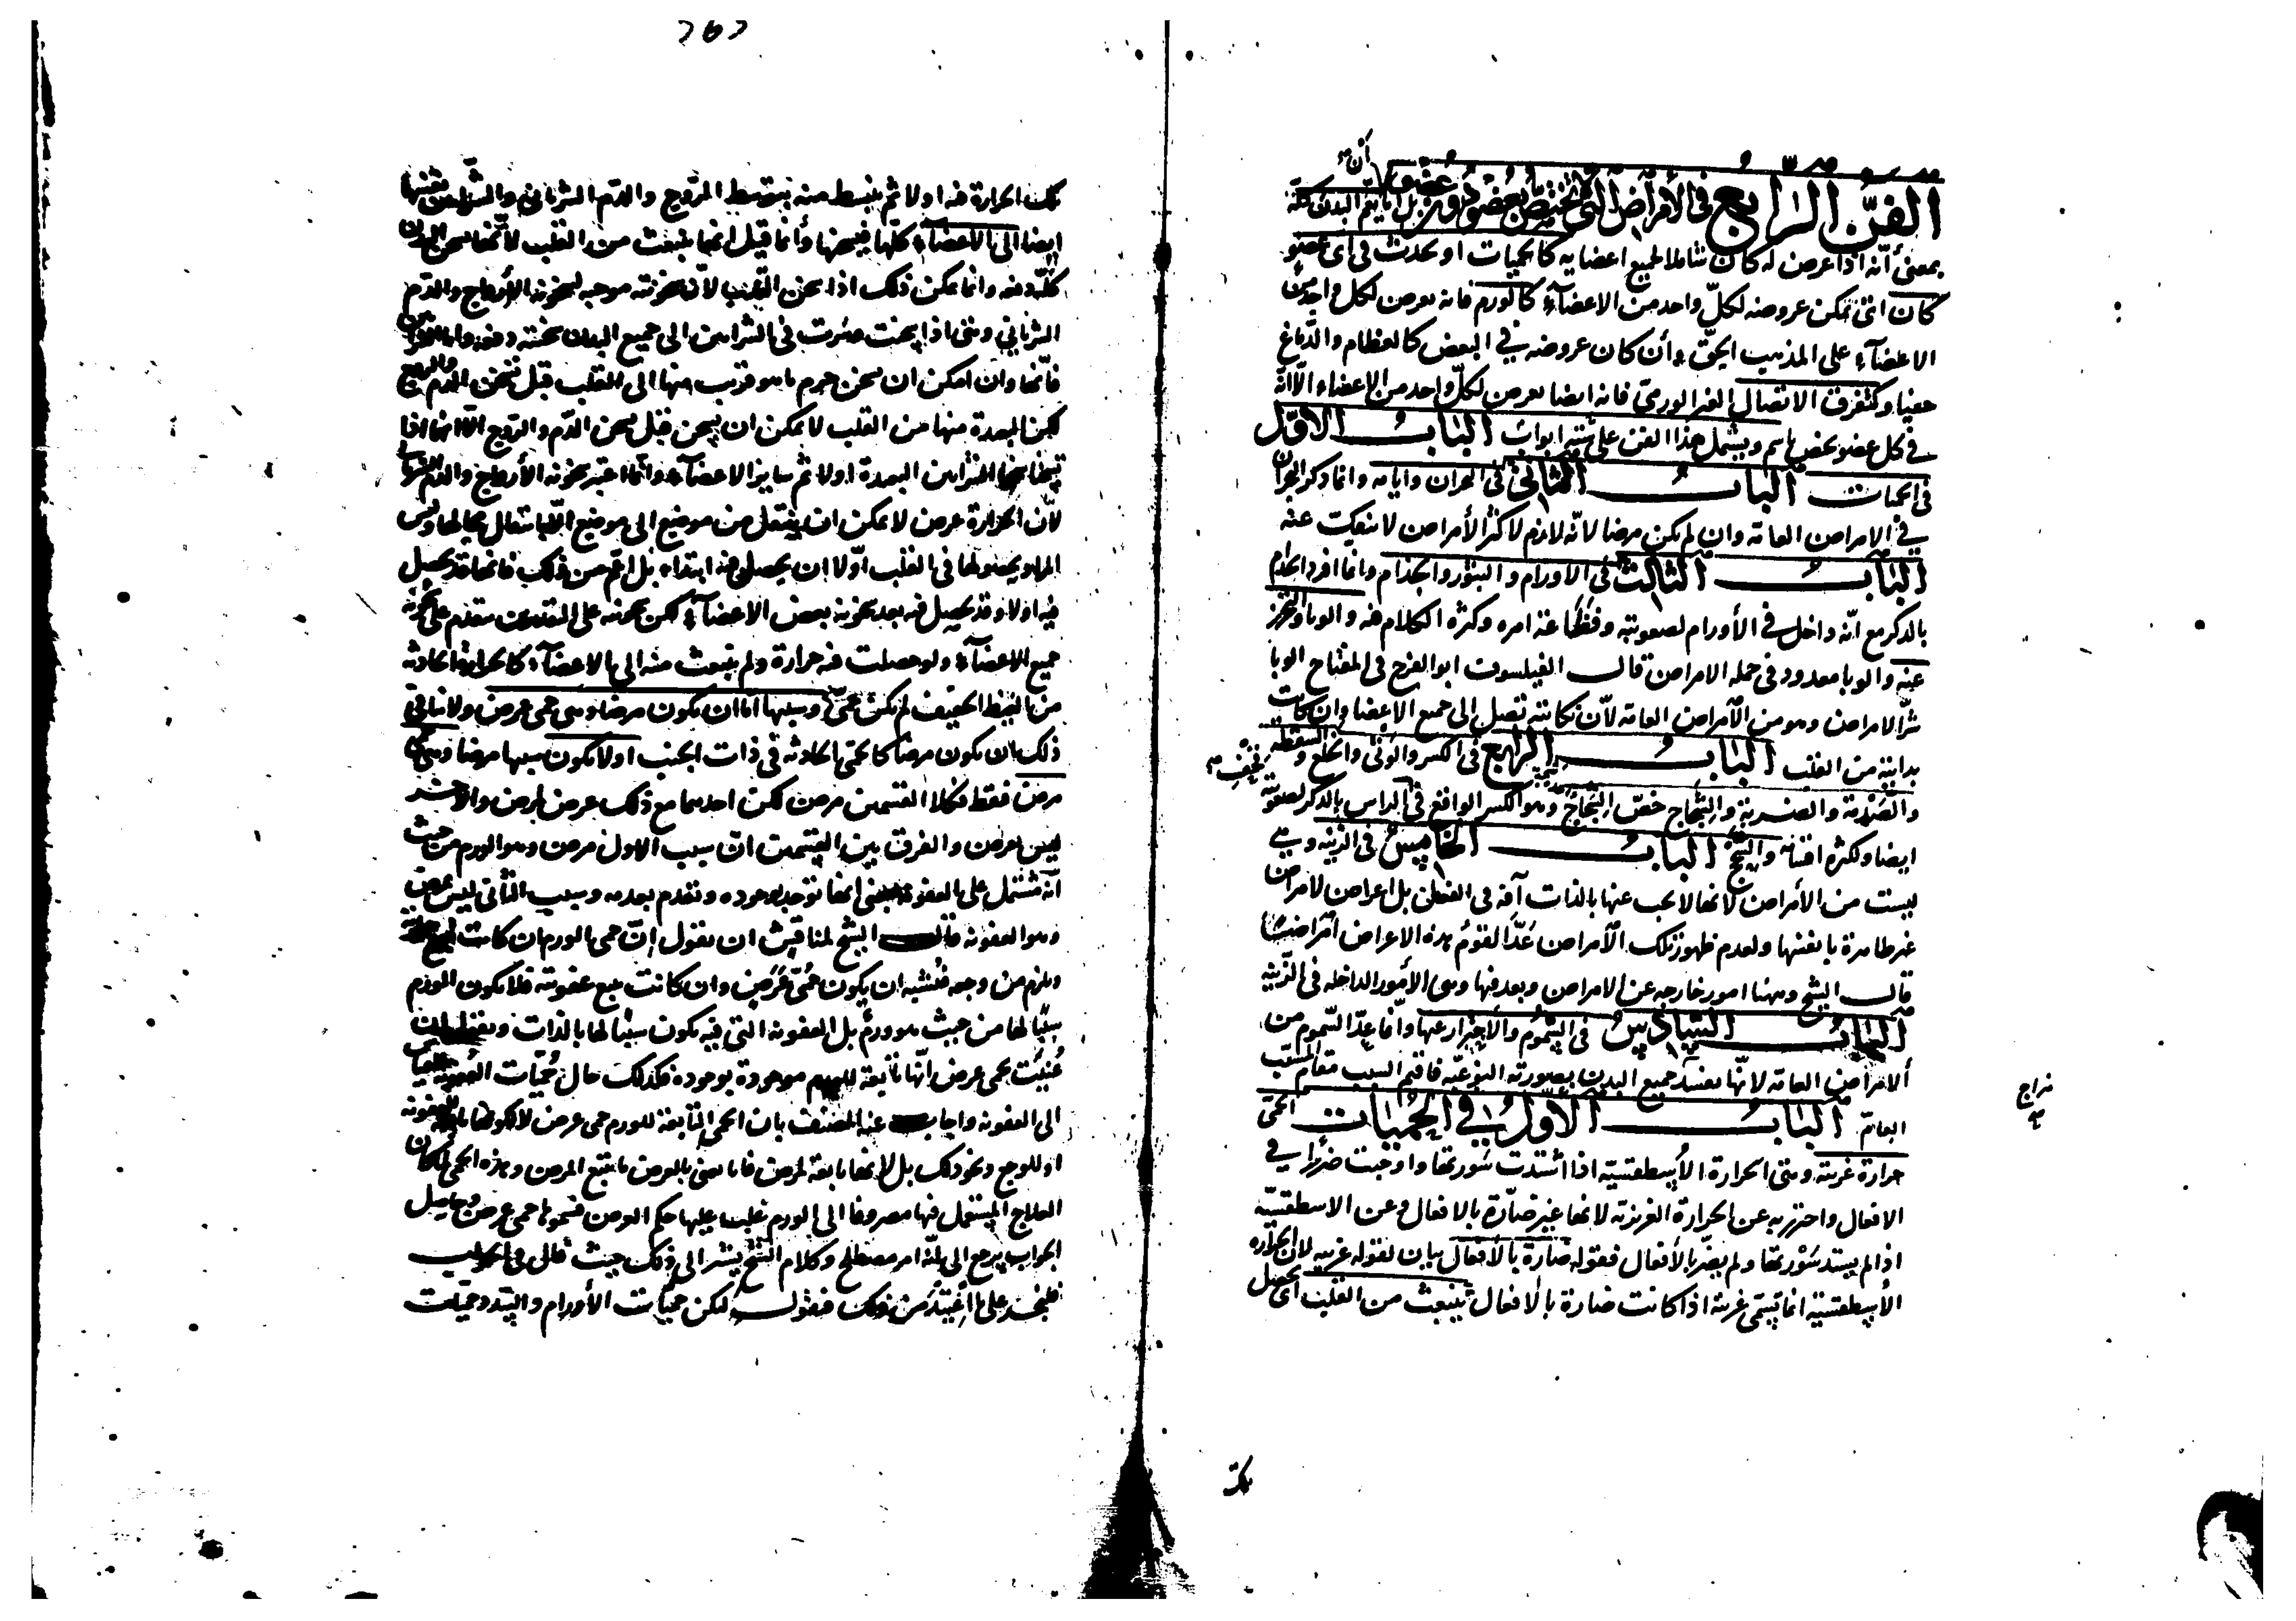 الفنّ الرّابع في الأمراض التي لا تختص بعضو دون عضو بل اما يعم البدن كله
بمعنى أنّه اذا عرض له كان شاملا لجميع اعضايه كالحميات او يحدث في اى عضو
كان اى يمكن عروضه لكلّ واحد من الاعضآء كالورم فانه يعرض لكل واحد من
الاعضآء على المذهب الحق وأن كان عروضه في البعض كالعظام والدّماغ
خفيا وكتفرق الاتصال الغير الورمي فانه ايضا يعرض لكلّ واحد من الاعضاء الّا انّه
في كل عضو يخص باسم ويشمل هذا الفن على ستة ابواب الباب الأوّل
في الحميات الباب الثاني في البحران وايامه وانما ذكر البحران
في الامراض العامة وان لم يكن مرضا لانّه لازم لاكثر الأمراض لا ينفك عنه
الباب الثالث في الاورام والبثور والجذام وانما افرد الجذام
بالذكر مع انّه داخل في الأورام لصعوبته وفظاعة امره وكثرة الكلام فيه والوبا والتحرز
عنه والوبا معدود في جملة الامراض قال الفيلسوف ابو الفرج في المفتاح الوبا
شرّ الامراض وهو من الأمراض العامة لأنّ نكايته تصل الى جميع الاعضا وان كانت
بدايته من القلب الباب الرابع في الكسر والوثى والخلع والسقطه
والصّدمة والضربة والشجاج خصّ الشجاج وهو الكسر الواقع في الراس بالذكر لصعوبته
ايضا ولكثرة افتنانه والسحج الباب الخامس في الزينه وهي
ليست من الأمراض لانها لا يجب عنها بالذات آفه في الفعل بل اعراض لامراض
غير ظاهرة بانفسها ولعدم ظهور تلك الأمراض عدّ القوم هذه الاعراض أمراضا
قال الشيخ وههنا امور خارجه عن الامراض ويعد فيها وهى الأمور الداخله في الزّينه
الباب السّادس في السّموم والاحتراز عنها وانما عدّ السّموم من
الامراض العامه لانّها يفسد جميع البدن بصورته النوعيّه فاقيم السبب مقام المسبّب
العام الباب الأول في الحميات الحمّى
حرارة غريبة وهى الحرارة الأسطقسية اذا اشتدت سورتها واوجبت ضررا في
الافعال واحترز به عن الحرارة الغريزية لانها غير ضارّة بالافعال وعن الاسطقسيّة
اذا لم يشتد سورتها ولم يضرّ بالأفعال فقوله ضارة بالأفعال بيان لقوله غريبه لان الحرارة
الأسطقسية انما تسمّى غريبة اذا كانت ضارة بالأفعال تنبعث من القلب اى يحصل
تلك
تلك الحرارة فيه اولا ثم ينبسط منه بتوسط الرّوح والدّم الشرياني والشّرايين نفسها
ايضا الى الاعضآء كلّها فيسخنها وأنما قيل انها ينبعث من القلب لأنّها يسخن البدن
كلّه دفعه وانما يمكن ذلك اذا سخن القلب لأنّ سخونته موجبه لسخونة الأرواح والدّم
الشرياني وهى اذا سخنت وسرت في الشرايين الى جميع البدن سخنته دفعه واما الشرايين
فانها وان امكن ان يسخن جرم ما هو قريب منها الى القلب قبل تسخن الدّم والروح
لكن البعيدة منها من القلب لا يمكن ان يسخن قبل سخن الدّم والرّوح الّا انها اذا
سخنا سخنا الشرايين البعيدة اولا ثم ساير الاعضآء وانّما اعتبر سخونة الأرواح والدم
لأن الحرارة عرض لا يمكن ان ينتقل من موضع الى موضع الّا بانتقال محالها وليس
المراد بحصولها في القلب أوّلا ان يحصل فيه ابتداء بل اعمّ من ذلك فانها قد يحصل
فيه اولا وقد يحصل فيه بعد سخونة بعض الاعضآء لكن سخونته على التقديرين متقدم على سخونة
جميع الاعضآء ولو حصلت فيه حرارة ولم ينبعث منه الى الاعضآء كالحرارة الحادثة
من الغيظ الخفيف لم يكن حمّى وسببها امّا ان يكون مرضا وهى حمى عرض ولا ينافي
ذلك ان يكون مرضا كالحمّى الحادثه في ذات الجنب او لا يكون سببها مرضا وهى حمّى
مرض فقط فكلا القسمين مرض لكن احدهما مع ذلك عرض لمرض والآخر
ليس بعرض والفرق بين القسمين انّ سبب الاول مرض وهو الورم من حيث
أنّه مشتمل على العفونة بمعنى انها توجد بوجوده وتعدم بعدمه وسبب الثاني ليس بمرض
وهو العفونه قال الشيخ لمناقش ان يقول إنّ حمى الورم ان كانت
ويلزم من وجعه فيشبه ان يكون حمّى مرض وان كانت تتبع عفونته فلا يكون الورم
سببا لها من حيث هو ورم بل العفونه التي فيه يكون سببا لها بالذات
عنيت بحمى عرض انّها تابعة للورم موجودة بوجوده فكذلك حال حُمّيات العفونه
الى العفونه واجاب عنه المصنف بان الحمى التابعة للورم حمى عرض لا لكونها تابعة للعفونه
او للوجع ونحو ذلك بل لانها تابعة لمرض فانا نعنى بالعرض ما يتبع المرض وهذه الحمى لما كان
العلاج المستعمل فيها مصروفا الى الورم غلب عليها حكم العرض فسموها حمى عرض وحاصل
الجواب يرجع الى انّه امر مصطلح وكلام الشيخ يشير الى ذلك حيث قال في الجواب
على ما اعتيد من ذلك فنقول لكن حميات الأورام والسّدد وحميات